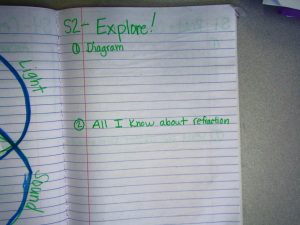 S2- Explore!
① Diagram
② All I know about refraction
Light
Sound